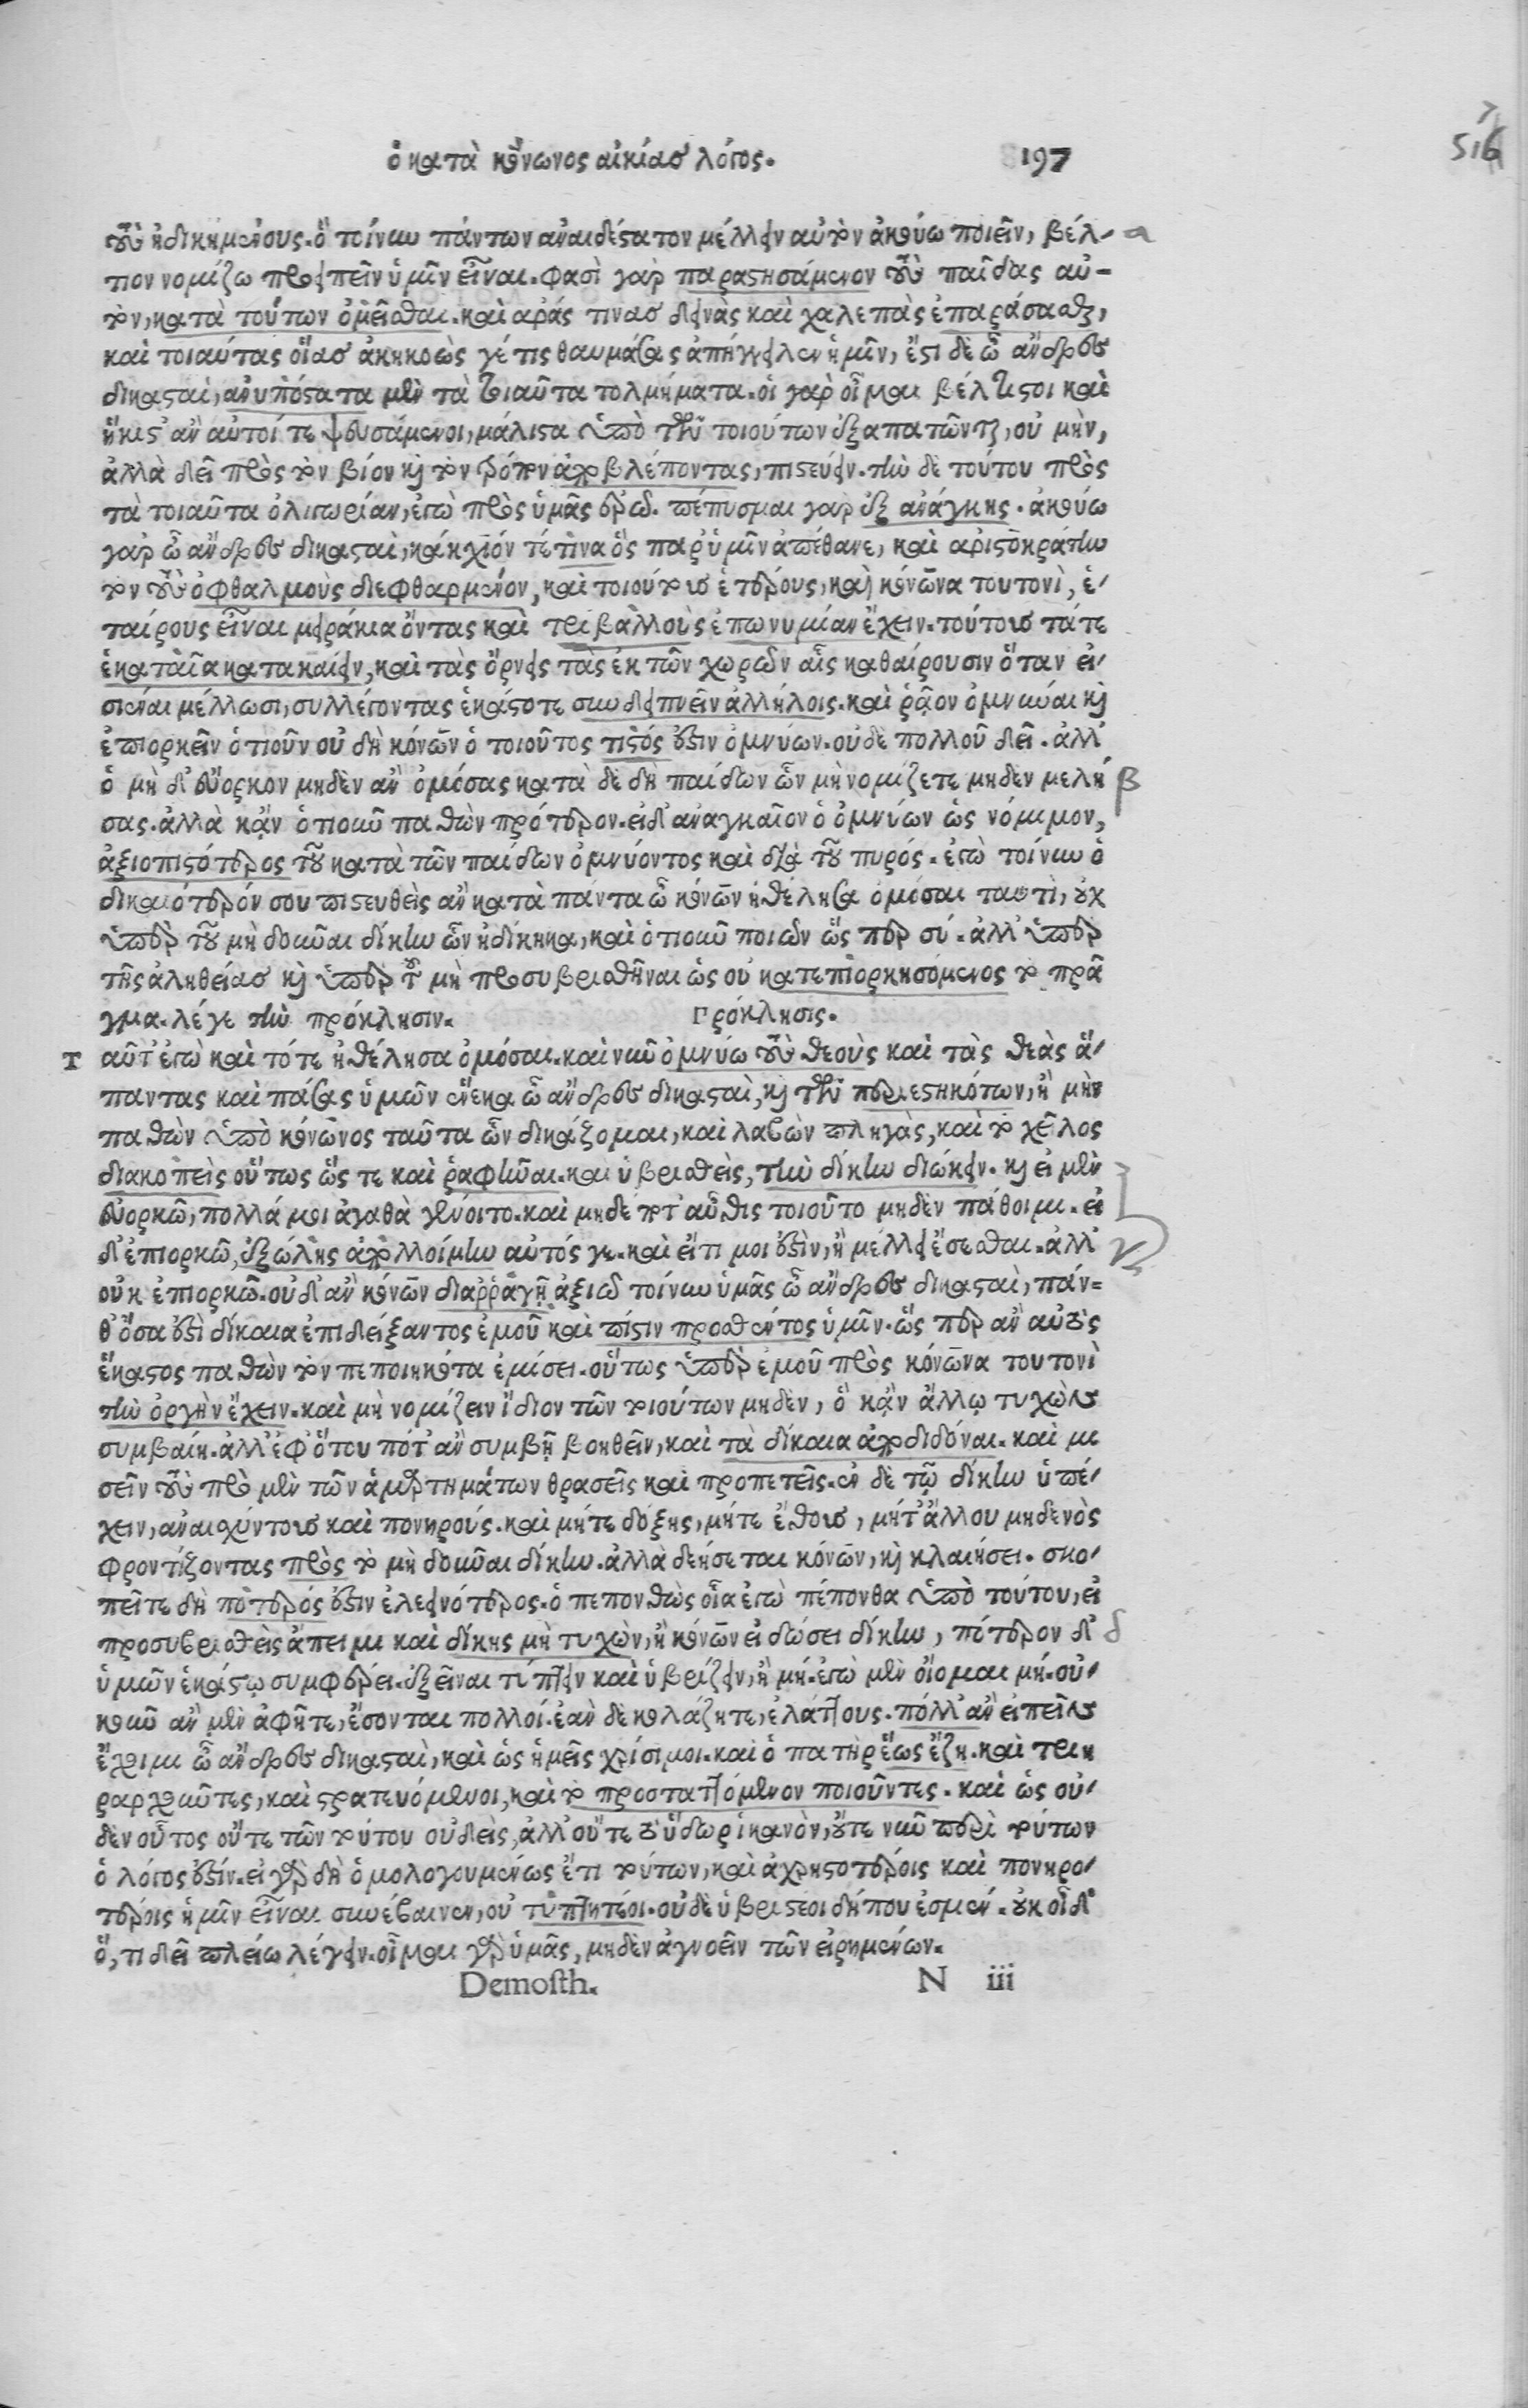 ὁ κατὰ κόνωνος αἰκίασ λόγος. 197
516
τοὺς ἠδικημένους. ὃ τοίνυν πάντων ἀναιδέστατον μέλλειν αὐτὸν ἀκούω ποιεῖν, βέλ- α
τιον νομίζω προειπεῖν ὑμῖν εἶναι. φασὶ γὰρ παραστησάμενον τοὺς παῖδας αὑ-
τὸν, κατὰ τούτων ὀμεῖσθαι. καὶ ἀράς τινασ δεινὰς καὶ χαλεπὰς ἐπαράσασθαι,
καὶ τοιαύτας οἵασ ἀκηκοὼς γέ τις θαυμάσας ἀπήγγελλεν ἡμῖν, ἔστι δὲ ὦ ἄνδρες
δικασταὶ, ἀνυπόστατα μὲν τὰ τοιαῦτα τολμήματα. οἱ γὰρ οἶμαι βέλτιστοι καὶ
ἥκιστ' ἂν αὐτοί τε ψευσάμενοι, μάλιστα ὑπὸ τῶν τοιούτων ἐξαπατῶνται, οὐ μὴν,
ἀλλὰ δεῖ πρὸς τὸν βίον καὶ τὸν τρόπον ἀποβλέποντας, πιστεύειν. τὴν δὲ τούτου πρὸς
τὰ τοιαῦτα ὀλιγωρίαν, ἐγὼ πρὸς ὑμᾶς ἐρῶ. πέπυσμαι γὰρ ἐξ ἀνάγκης. ἀκούω
γὰρ ὦ ἄνδρες δικασταὶ, βάκχιόν τέ τινα ὃς παρ' ὑμῖν ἀπέθανε, καὶ ἀριστοκράτην
τὸν τοὺς ὀφθαλμοὺς διεφθαρμένον, καὶ τοιούτουσ ἑτέρους, καὶ κόνωνα τουτονὶ, ἑ-
ταίρους εἶναι μειράκια ὄντας καὶ τριβαλλοὺς ἐπωνυμίαν ἔχειν. τούτουσ τά τε
ἑκαταῖα κατακαίειν, καὶ τὰς ὄρχεις τὰς ἐκ τῶν χοίρων αἷς καθαίρουσιν ὅταν εἰ-
σιέναι μέλλωσι, συλλέγοντας ἑκάστοτε συνδειπνεῖν ἀλλήλοις. καὶ ῥᾷον ὀμνύναι καὶ
ἐπιορκεῖν ὁτιοῦν οὐ δὴ κόνων ὁ τοιοῦτος πιστός ἐστιν ὀμνύων. οὐδὲ πολλοῦ δεῖ. ἀλλ'
ὁ μὴ δ' εὔορκον μηδὲν ἂν ὀμόσας κατὰ δὲ δὴ παίδων ὧν μὴ νομίζετε μηδὲν μελή β
σας. ἀλλὰ κἂν ὁτιοῦν παθὼν πρότερον. εἰ δ' ἀναγκαῖον ὁ ὀμνύων ὡς νόμιμον,
ἀξιοπιστότερος τοῦ κατὰ τῶν παίδων ὀμνύοντος καὶ διὰ τοῦ πυρός. ἐγὼ τοίνυν ὁ
δικαιότερόν σου πιστευθεὶς ἂν κατὰ πάντα ὦ κόνων ἠθέλησα ὀμόσαι ταυτὶ, οὐχ
ὑπὲρ τοῦ μὴ δοῦναι δίκην ὧν ἠδίκηκα, καὶ ὁτιοῦν ποιῶν ὥσπερ σύ. ἀλλ' ὑπὲρ
τῆς ἀληθείασ καὶ ὑπὲρ τοῦ μὴ προσυβρισθῆναι ὡς οὐ κατεπιορκησόμενος τὸ πρᾶ
γμα. λέγε τὴν πρόκλησιν. Πρόκλησις.
Τ αῦτ' ἐγὼ καὶ τότε ἠθέλησα ὀμόσαι. καὶ νῦν ὀμνύω τοὺς θεοὺς καὶ τὰς θεὰς ἅ-
παντας καὶ πάσας ὑμῶν ἕνεκα ὦ ἄνδρες δικασταὶ, καὶ τῶν περιεστηκότων, ἦ μὴν
παθὼν ὑπὸ κόνωνος ταῦτα ὧν δικάζομαι, καὶ λαβὼν πληγὰς, καὶ τὸ χεῖλος
διακοπεὶς οὕτως ὥστε καὶ ῥαφῆναι. καὶ ὑβρισθεὶς, τὴν δίκην διώκειν. καὶ εἰ μὲν
εὐορκῶ, πολλά μοι ἀγαθὰ γένοιτο. καὶ μηδέποτ' αὖθις τοιοῦτο μηδὲν πάθοιμι. εἰ
δ' ἐπιορκῶ, ἐξώλης ἀπολλοίμην αὐτός γε. καὶ εἴ τι μοι ἐστὶν, ἢ μέλλει ἔσεσθαι. ἀλλ' γ
οὐκ ἐπιορκῶ. οὐδ' ἂν κόνων διαῤῥαγῇ. ἀξιῶ τοίνυν ὑμᾶς ὦ ἄνδρες δικασταὶ, πάν-
θ' ὅσα ἐστὶ δίκαια ἐπιδείξαντος ἐμοῦ καὶ πίστιν προσθέντος ὑμῖν. ὥσπερ ἂν αὐτὸς
ἕκαστος παθὼν τὸν πεποιηκότα ἐμίσει. οὕτως ὑπὲρ ἐμοῦ πρὸς κόνωνα τουτονὶ
τὴν ὀργὴν ἔχειν. καὶ μὴ νομίζειν ἴδιον τῶν τοιούτων μηδὲν, ὃ κἂν ἄλλῳ τυχὸν
συμβαίη. ἀλλ' ἐφ' ὅτου πότ' ἂν συμβῇ βοηθεῖν, καὶ τὰ δίκαια ἀποδιδόναι. καὶ μι
σεῖν τοὺς πρὸ μὲν τῶν ἁμαρτημάτων θρασεῖς καὶ προπετεῖς. ἐν δὲ τῷ δίκην ὑπέ-
χειν, ἀναισχύντουσ καὶ πονηρούς. καὶ μήτε δόξης, μήτε ἔθουσ, μήτ' ἄλλου μηδενὸς
φροντίζοντας πρὸς τὸ μὴ δοῦναι δίκην. ἀλλὰ δεήσεται κόνων, καὶ κλαιήσει. σκο-
πεῖτε δὴ πότερός ἐστιν ἐλεεινότερος. ὁ πεπονθὼς οἷα ἐγὼ πέπονθα ὑπὸ τούτου, εἰ
προσυβρισθεὶς ἄπειμι καὶ δίκης μὴ τυχὼν, ἢ κόνων εἰ δώσει δίκην, πότερον δ' δ
ὑμῶν ἑκάστῳ συμφέρει. ἐξεῖναι τύπτειν καὶ ὑβρίζειν, ἢ μή. ἐγὼ μὲν οἴομαι μή. οὐ-
κοῦν ἂν μὲν ἀφῆτε, ἔσονται πολλοί. ἐὰν δὲ κολάζητε, ἐλάττους. πόλλ' ἂν εἰπεῖν
ἔχοιμι ὦ ἄνδρες δικασταὶ, καὶ ὡς ἡμεῖς χρήσιμοι. καὶ ὁ πατὴρ ἕως ἔζη. καὶ τριη
ραρχοῦντες, καὶ στρατευόμενοι, καὶ τὸ προσταττόμενον ποιοῦντες. καὶ ὡς οὐ-
δὲν οὗτος οὔτε τῶν τούτου οὐδεὶς, ἀλλ' οὔτε τὸ ὕδωρ ἱκανὸν, οὔτε νῦν περὶ τούτων
ὁ λόγος ἐστίν. εἰ γὰρ δὴ ὁμολογουμένως ἔτι τούτων, καὶ ἀχρηστοτέροις καὶ πονηρο-
τέροις ἡμῖν εἶναι συνέβαινεν, οὐ τυπτητέοι. οὐδὲ ὑβριστέοι δήπου ἐσμέν. οὐκ οἶδ'
ὅ, τι δεῖ πλείω λέγειν. οἶμαι γὰρ ὑμᾶς, μηδὲν ἀγνοεῖν τῶν εἰρημένων.
Demosth. N iii